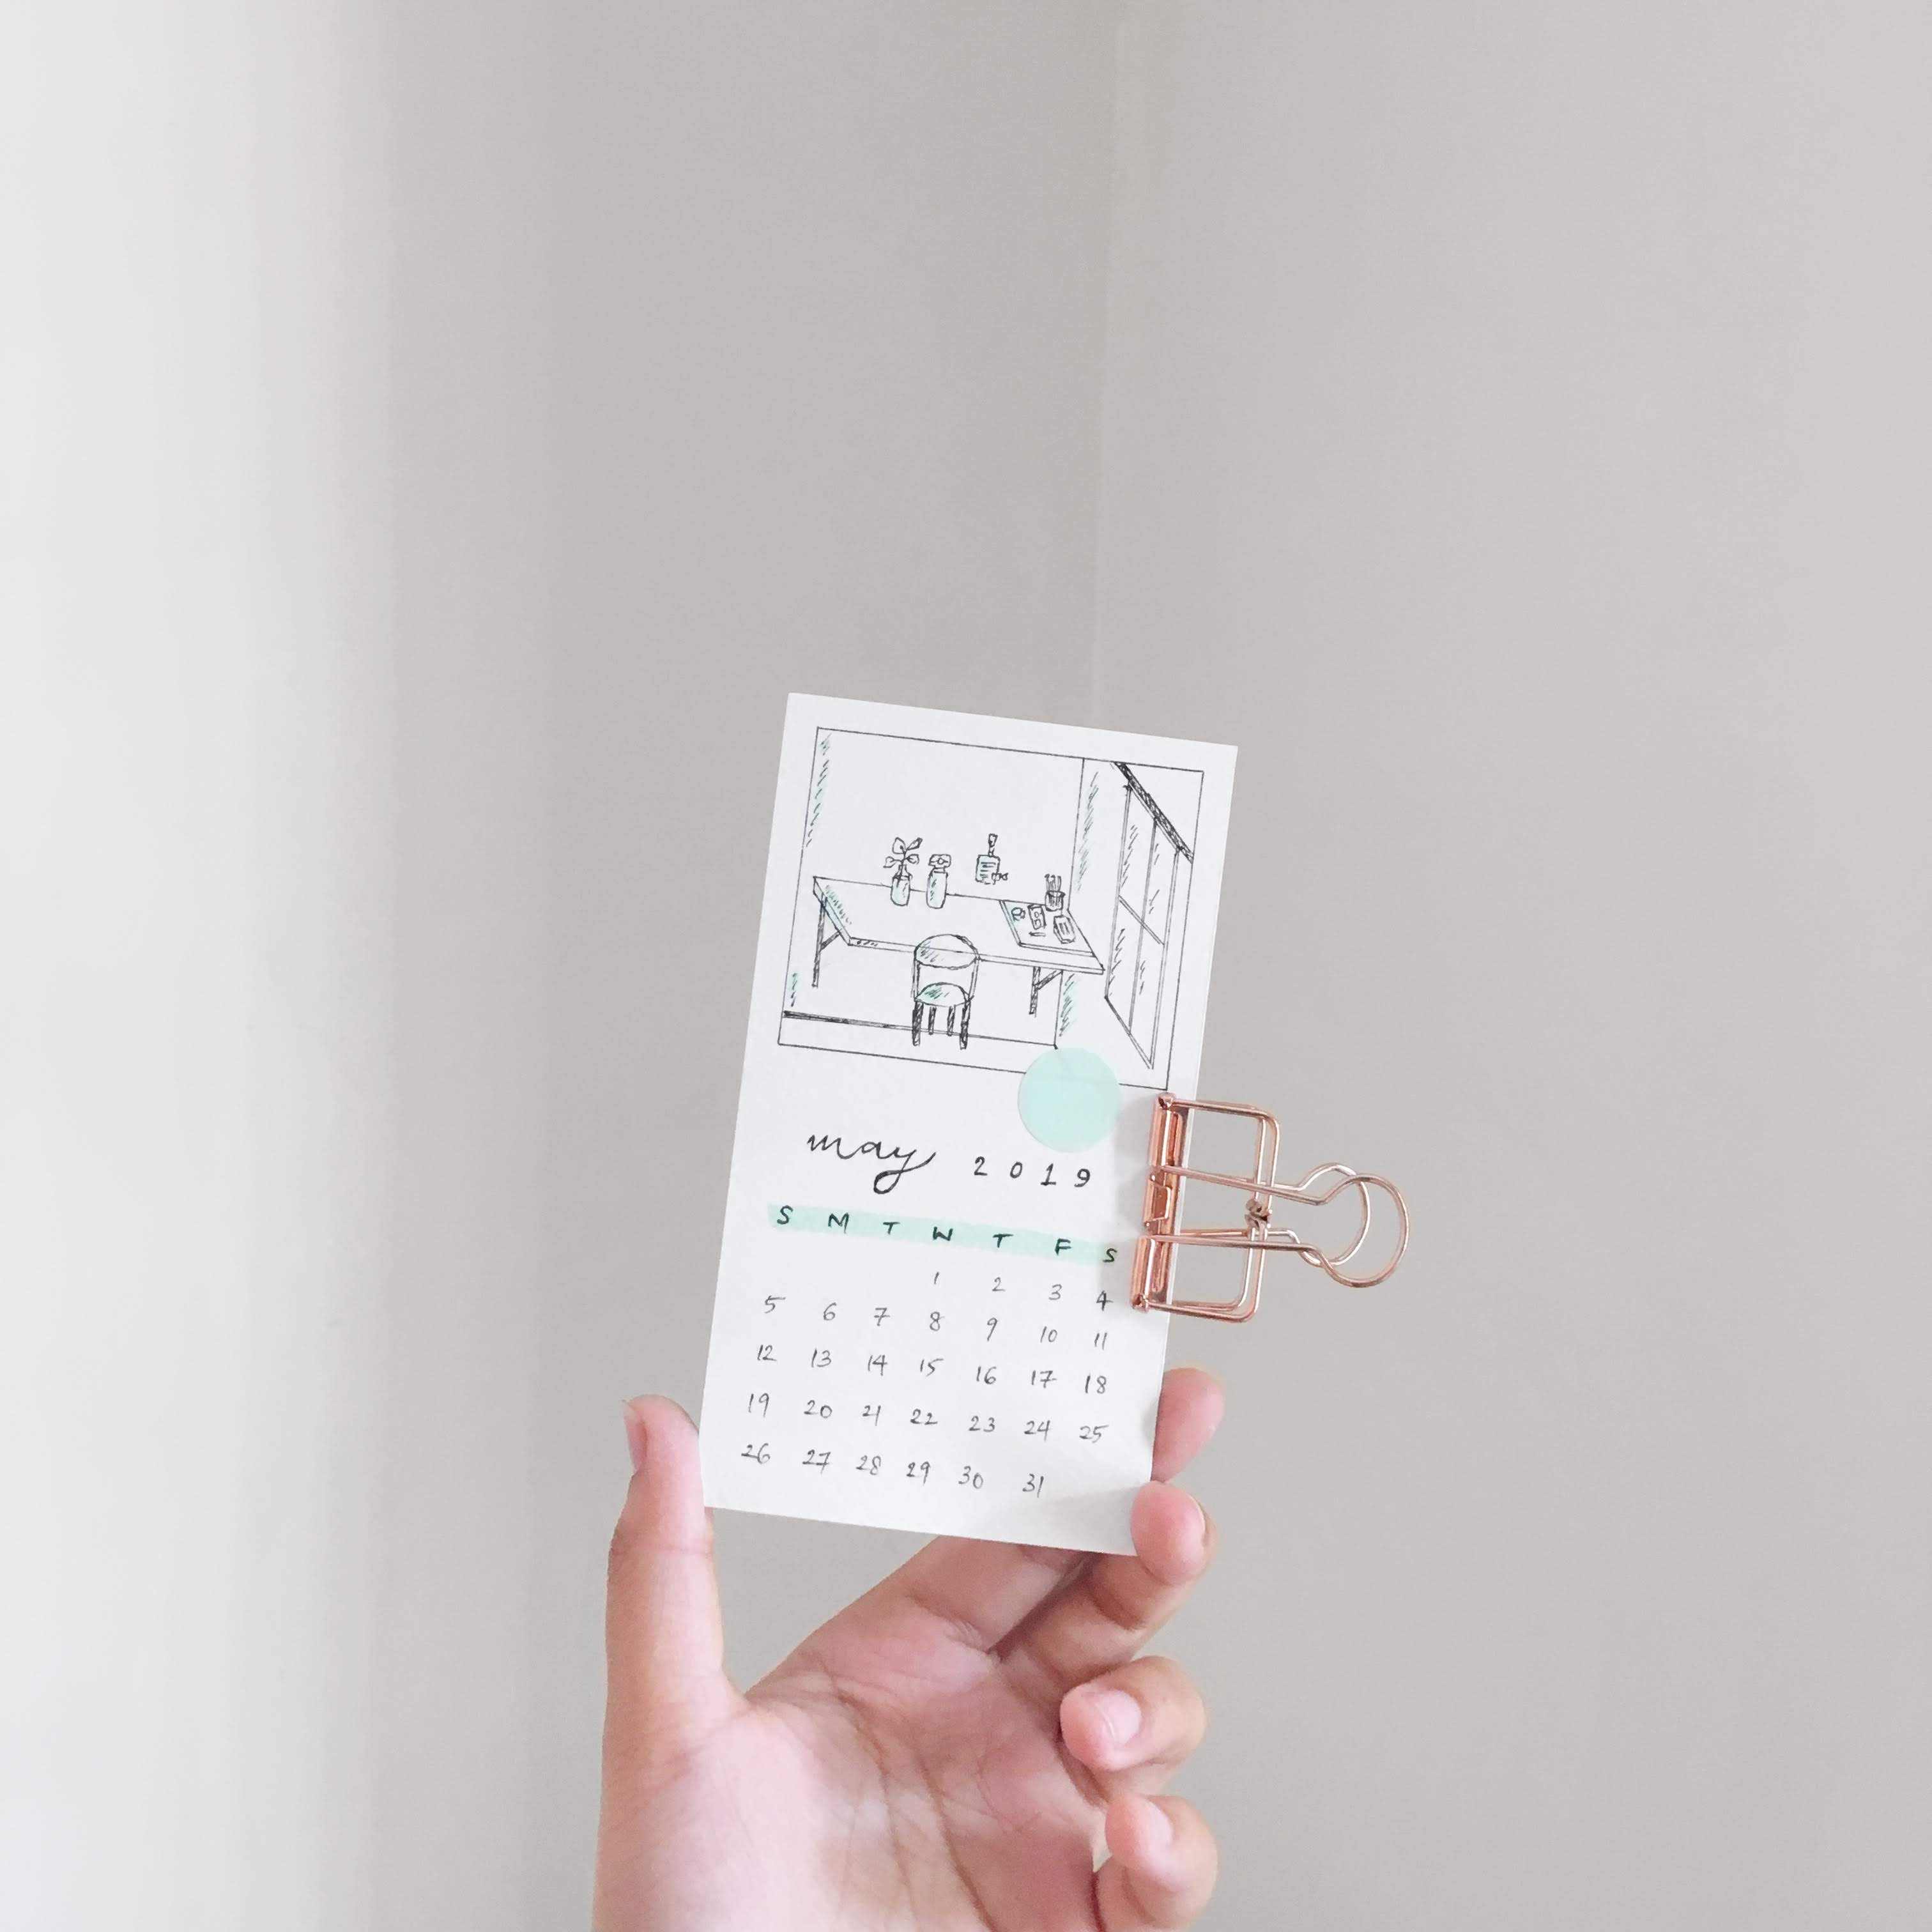 may 2019
S M T W T F S
1 2 3 4
5 6 7 8 9 10 11
12 13 14 15 16 17 18
19 20 21 22 23 24 25
26 27 28 29 30 31